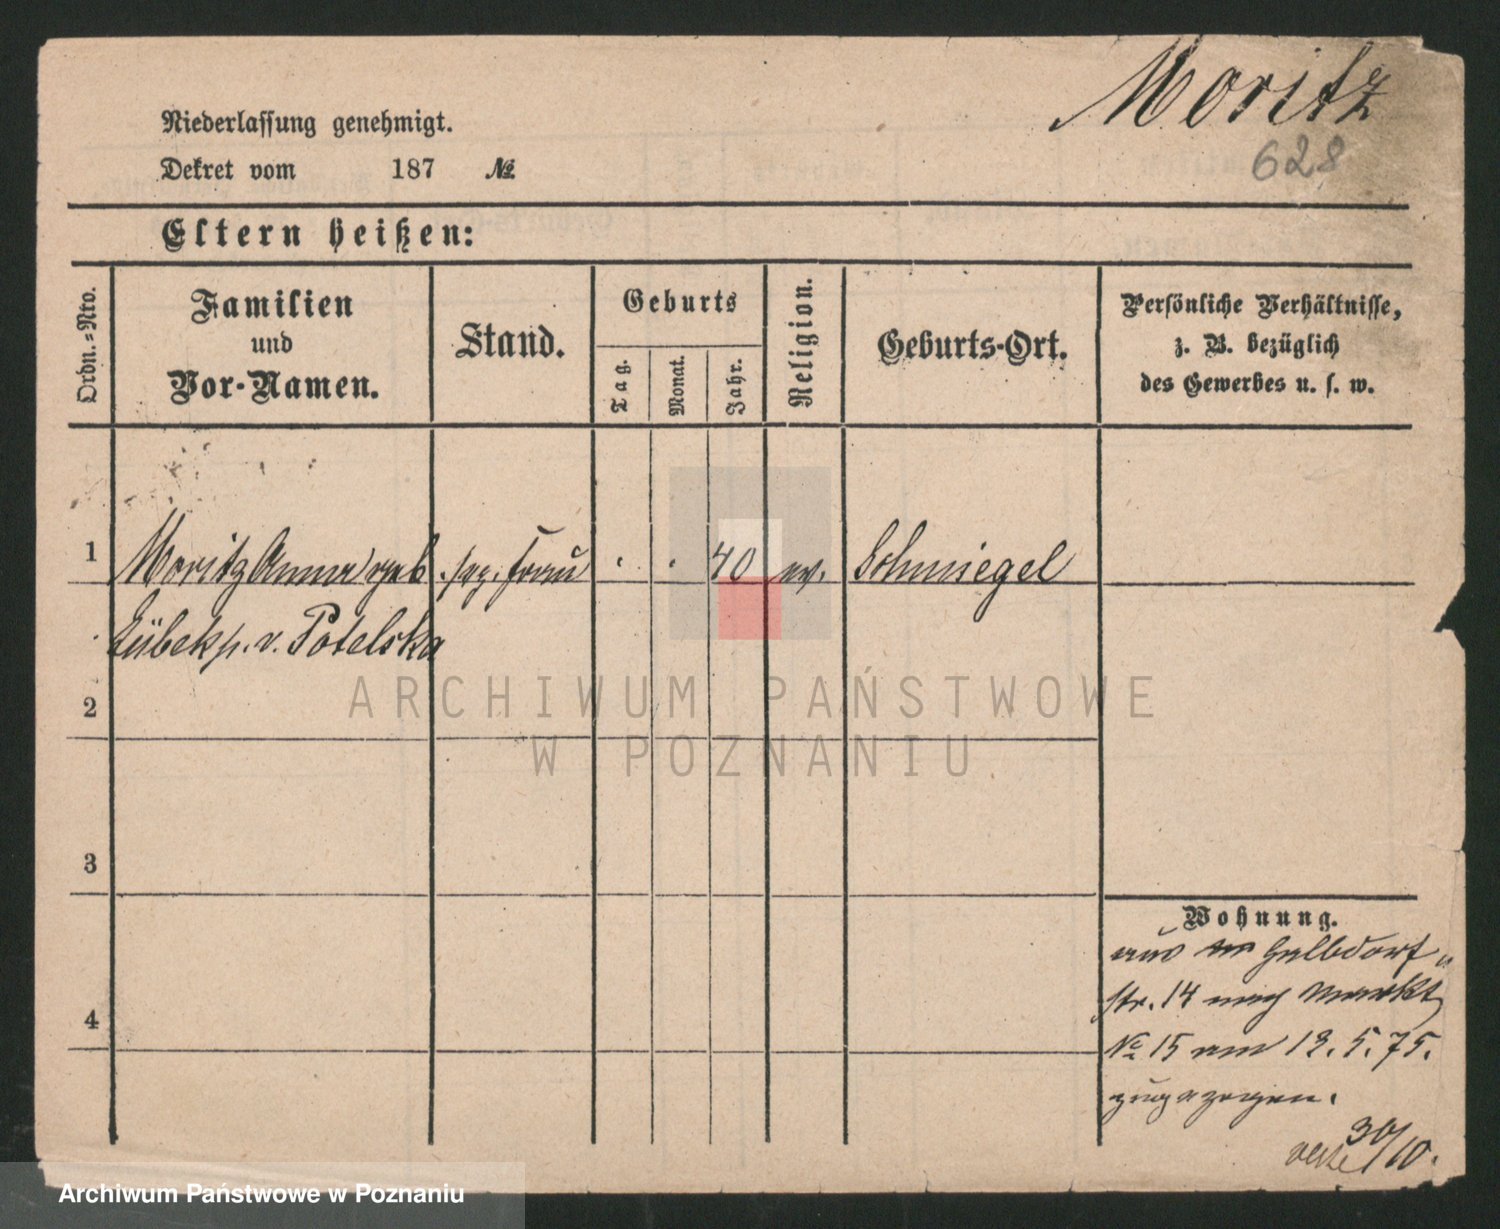 Moritz
628
Niederlassung genehmigt.
Dekret vom 187 №
Eltern heißen:
Ordn.=Nro.
Familien
und
Vor-Namen.
Stand.
Geburts
Tag.
Monat.
Jahr.
Religion.
Geburts-Ort.
Persönliche Verhältnisse,
z. B. bezüglich
des Gewerbes u. s. w.
1 Moritz Anna geb. Frau 40 ev. Schmiegel
v. Potelska
2
3
4
Wohnung.
aus Halbdorf-
str. 14 nach Markt
№ 15 am 5. 75.
zugezogen.
30/10.
ARCHIWUM PAŃSTWOWE
W POZNANIU
Archiwum Państwowe w Poznaniu